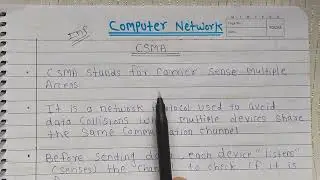 Imp
Computer Network
CSMA
• CSMA stands for Carrier Sense Multiple
Access
• It is a network protocol used to avoid
data Collisions when multiple devices share
the Same Communication channel
• Before sending data, each device "listens"
(senses) the channel to check if it is